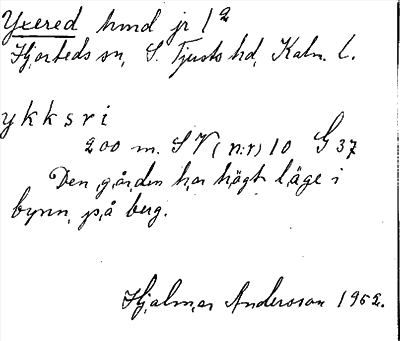 Yxered hmd jr 1 a
Hjorteds sn, S. Tjusts hd, Kalm. l.
ykksri
200 m. SV (n:r) 10 G 37
Den gården har högt läge i
byn, på berg.
Hjalmar Andersson 1952.